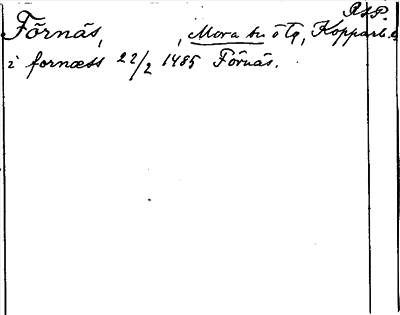 RAP.
Förnäs, , Mora sn o tg, Kopparb. l
i fornæss 22/2 1485 Förnäs.